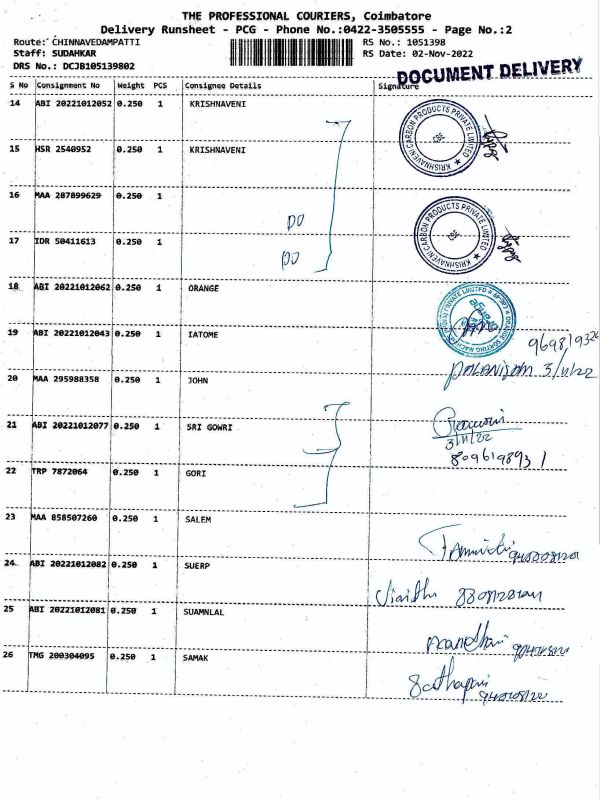 THE PROFESSIONAL COURIERS, Coimbatore
Delivery Runsheet - PCG - Phone No.:0422-3505555 - Page No.:2
Route: CHINNAVEDAMPATTI
RS No.: 1051398
Staff: SUDAHKAR
RS Date: 02-Nov-2022
DRS No.: DCJB105139802
DOCUMENT DELIVERY
S No Consignment No Weight PCS Consignee Details Signature
14 ABI 20221012052 0.250 1 KRISHNAVENI
KRISHNAVENI CARBON PRODUCTS PRIVATE LIMITED ★
15 HSR 2540952 0.250 1 KRISHNAVENI
16 MAA 287899629 0.250 1
DO
KRISHNAVENI CARBON PRODUCTS PRIVATE LIMITED ★
17 IDR 50411613 0.250 1
DO
18 ABI 20221012062 0.250 1 ORANGE
19 ABI 20221012043 0.250 1 IATOME
20 MAA 295988358 0.250 1 JOHN
3/11/22
21 ABI 20221012077 0.250 1 SRI GOWRI
3/11/22
8096198931
22 TRP 7872064 0.250 1 GORI
23 MAA 858507260 0.250 1 SALEM
24 ABI 20221012082 0.250 1 SUERP
25 ABI 20221012081 0.250 1 SUAMNLAL
26 TMG 200304095 0.250 1 SAMAK